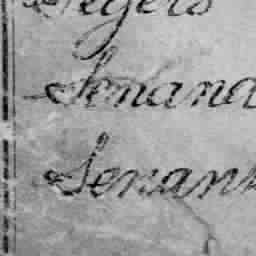 Segers
Senana
Senan